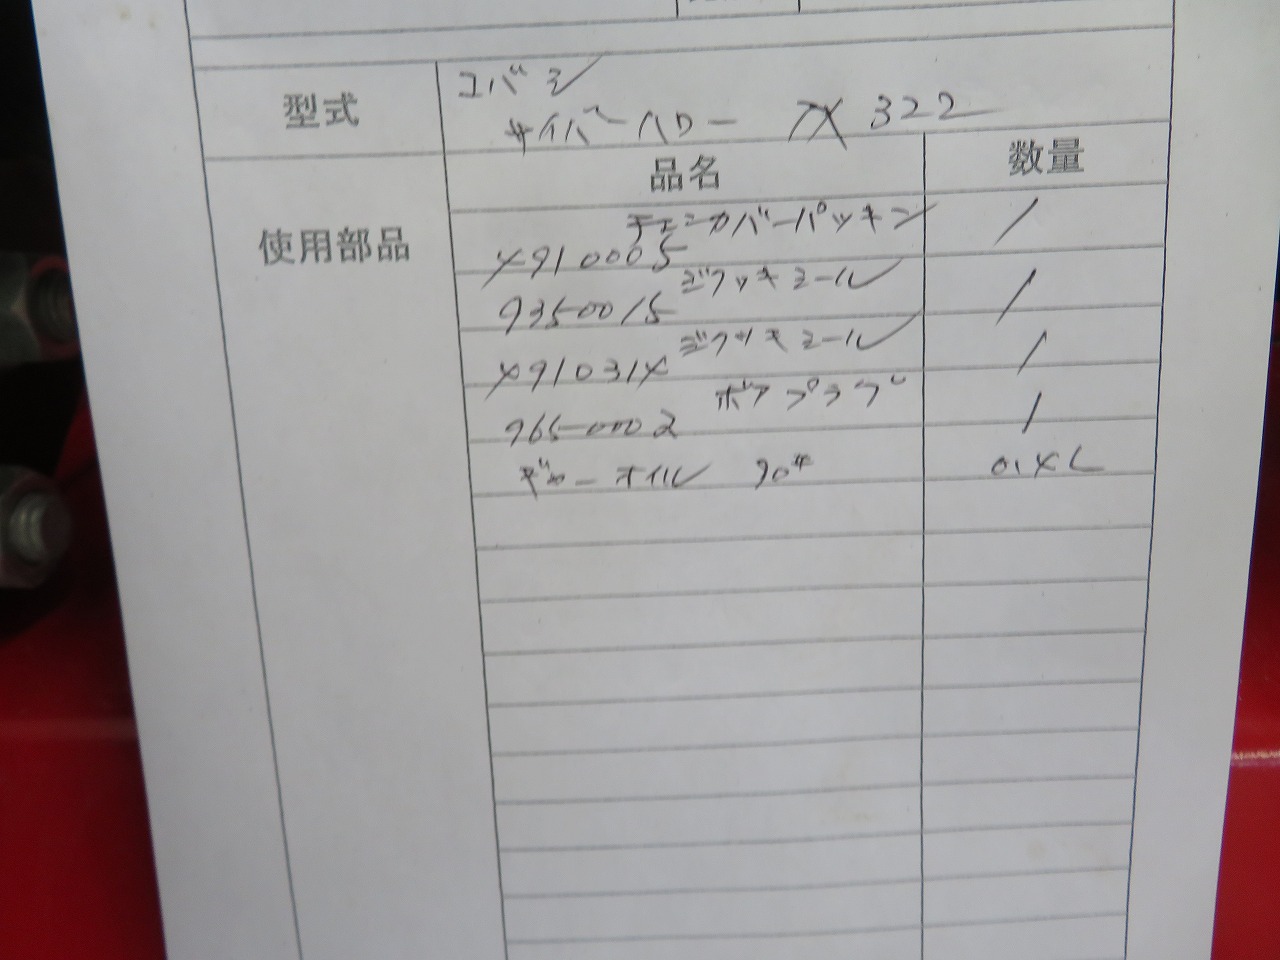 型式
コバシ
サイバーハロー TX 322
使用部品
品名
数量
チェンカバーパッキン
4910005
1
9350015 ジクツキシール
1
4910314 ジクツキシール
1
9650002 ボアプラグ
1
ギヤーオイル 90#
0.4L